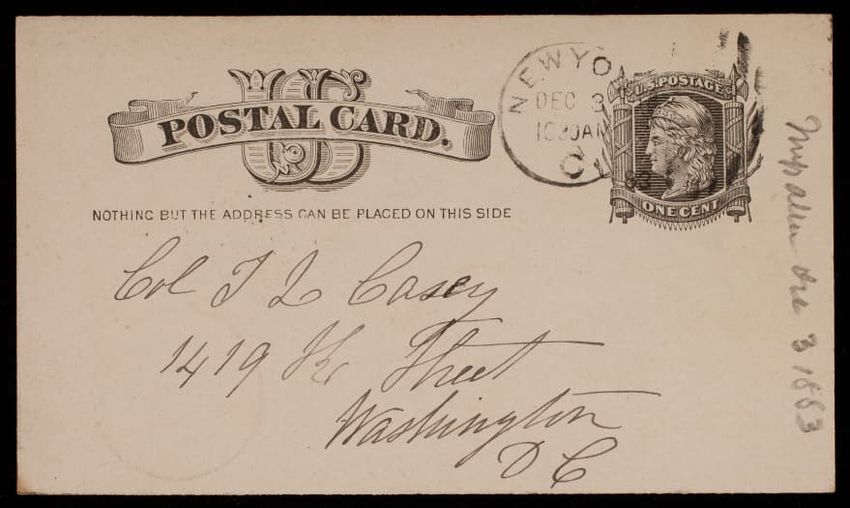 US
POSTAL CARD.
NOTHING BUT THE ADDRESS CAN BE PLACED ON THIS SIDE
NEW YO
DEC 3
1030AM
C
83
U.S. POSTAGE
ONE CENT
Col T L Casey
1419 K Street
Washington
D C
3 1883